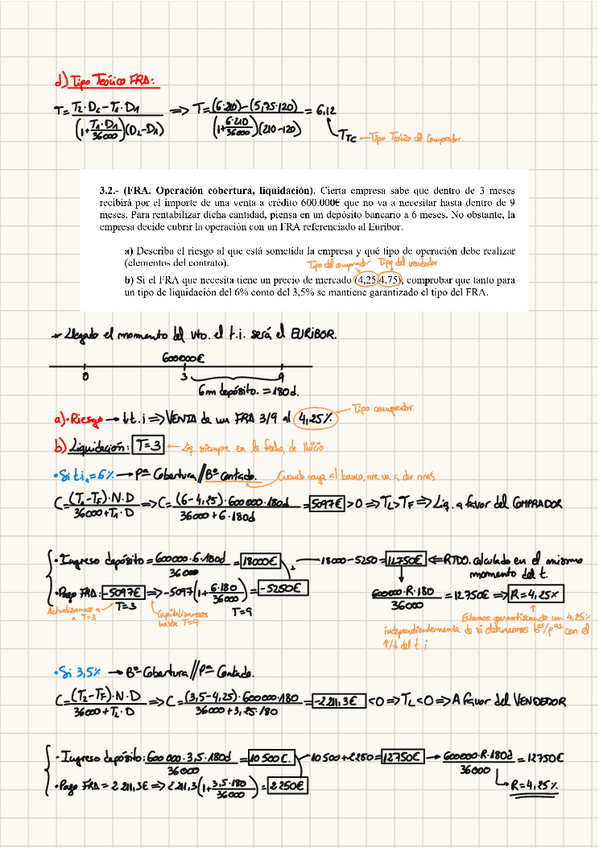 d) Tipo Teórico FRA:
T = (T₂·D₂ − T₁·D₁) / ((1 + T₁·D₁/36000)(D₂−D₁)) ⇒ T = ((6·210) − (5,75·120)) / ((1 + 6·210/36000)(210−120)) = 6,12
T_TC — Tipo Teórico del Comprador
3.2.- (FRA. Operación cobertura, liquidación). Cierta empresa sabe que dentro de 3 meses
recibirá por el importe de una venta a crédito 600.000€ que no va a necesitar hasta dentro de 9
meses. Para rentabilizar dicha cantidad, piensa en un depósito bancario a 6 meses. No obstante, la
empresa decide cubrir la operación con un FRA referenciado al Euribor.
a) Describa el riesgo al que está sometida la empresa y qué tipo de operación debe realizar
(elementos del contrato).
Tipo del comprador Tipo del vendedor
b) Si el FRA que necesita tiene un precio de mercado (4,25/4,75), comprobar que tanto para
un tipo de liquidación del 6% como del 3,5% se mantiene garantizado el tipo del FRA.
Llegado el momento del vto. el t.i. será el EURIBOR.
600000€
0 3 9
6m depósito. = 180d.
a) · Riesgo → ↓t.i ⇒ VENTA de un FRA 3/9 al 4,25% — Tipo comprador
b) Liquidación: T=3 — Liq. siempre en la fecha de inicio
· Si t.i. = 6% → Pª Cobertura // Bº Contado. Cuando vaya al banco, me va a dar más.
C = (T_L−T_F)·N·D / (36000 + T_L·D) ⇒ C = (6−4,25)·600000·180d / (36000 + 6·180d) = 5097€ > 0 ⇒ T_L > T_F ⇒ Liq. a favor del COMPRADOR
· Ingreso depósito = 600000·6·180d / 36000 = 18000€ → 18000 − 5250 = 12750€ ⇐ RTDO. calculado en el mismo momento del t.
· Pago FRA: -5097€ ⇒ -5097(1 + 6·180/36000) = -5250€
600000·R·180 / 36000 = 12750€ ⇒ R = 4,25%
T=3 T=9
Actualizamos a T=3
Capitalizamos hasta T=9
Estamos garantizando un 4,25%
independientemente de si obtenemos bº/pª con el
↑/↓ del t.i
· Si 3,5% → Bº Cobertura // Pª Contado.
C = (T_L−T_F)·N·D / (36000 + T_L·D) ⇒ C = (3,5−4,25)·600000·180 / (36000 + 3,25·180) = -2211,3€ < 0 ⇒ T_L < 0 ⇒ A favor del VENDEDOR
- Ingreso depósito: 600000·3,5·180d / 36000 = 10500€. → 10500 + 2250 = 12750€ → 600000·R·180d / 36000 = 12750€
· Pago FRA = 2211,3€ ⇒ 2211,3(1 + 3,5·180/36000) = 2250€
R = 4,25%